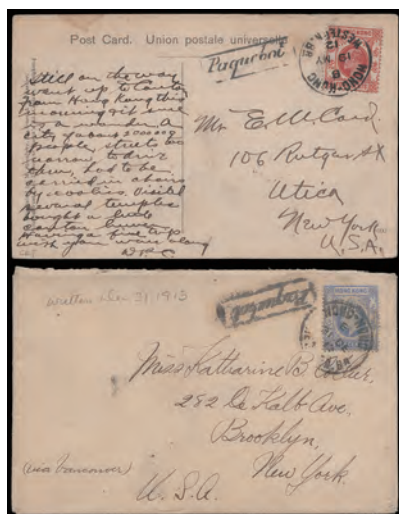 Post Card. Union postale universelle
Paquebot
HONG KONG
HONG-KONG
B
19 MY
12
WESTERN.BR
Still on the way
went up to Canton
from Hong Kong this
morning
is a wonder. A
city of about 2000000
people, streets too
narrow to drive
them, had to be
carried in chairs
by coolies. Visited
several temples
bought a little
canton linen
having a fine trip
wish you were along
Mr. E. W. Card.
106 Rutger St
Utica
New York
U.S.A.
written Dec 31 1913
Paquebot
HONG KONG
Miss Katharine B.
282 De Kalb Ave.
Brooklyn,
New York.
(via Vancouver)
U. S. A.